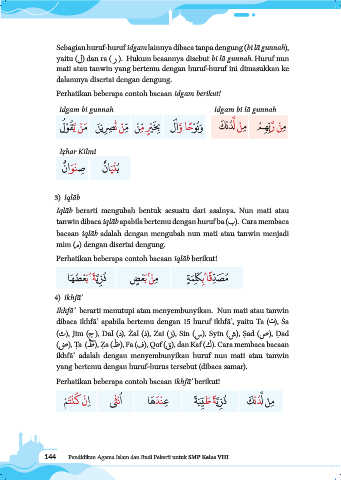 Sebagian huruf-huruf idgam lainnya dibaca tanpa dengung (bi lā gunnah),
yaitu (ل) dan ra (ر). Hukum bacannya disebut bi lā gunnah. Huruf nun
mati atau tanwin yang bertemu dengan huruf-huruf ini dimasukkan ke
dalamnya disertai dengan dengung.
Perhatikan beberapa contoh bacaan idgam berikut!
idgam bi gunnah idgam bi lā gunnah
مِنْ رَّبِّهِمْ مِنْ لَّدُنْكَ
Iẓhar Kilmi
صِنْوَانٌ بُنْيَانٌ
3) Iqlāb
Iqlāb berarti mengubah bentuk sesuatu dari asalnya. Nun mati atau
tanwin dibaca iqlāb apabila bertemu dengan huruf ba (ب). Cara membaca
bacaan iqlāb adalah dengan mengubah nun mati atau tanwin menjadi
mim (م) dengan disertai dengung.
Perhatikan beberapa contoh bacaan iqlāb berikut!
4) Ikhfā'
Ikhfā' berarti menutupi atau menyembunyikan. Nun mati atau tanwin
dibaca ikhfā' apabila bertemu dengan 15 huruf ikhfā', yaitu Ta (ت), Ṡa
(ث), Jim (ج), Dal (د), Żal (ذ), Zai (ز), Sin (س), Syin (ش), Ṣad (ص), Ḍad
(ض), Ṭa (ط), Ẓa (ظ), Fa (ف), Qof (ق), dan Kaf (ك). Cara membaca bacaan
ikhfā' adalah dengan menyembunyikan huruf nun mati atau tanwin
yang bertemu dengan huruf-hurus tersebut (dibaca samar).
Perhatikan beberapa contoh bacaan ikhfā' berikut!
144 Pendidikan Agama Islam dan Budi Pekerti untuk SMP Kelas VIII